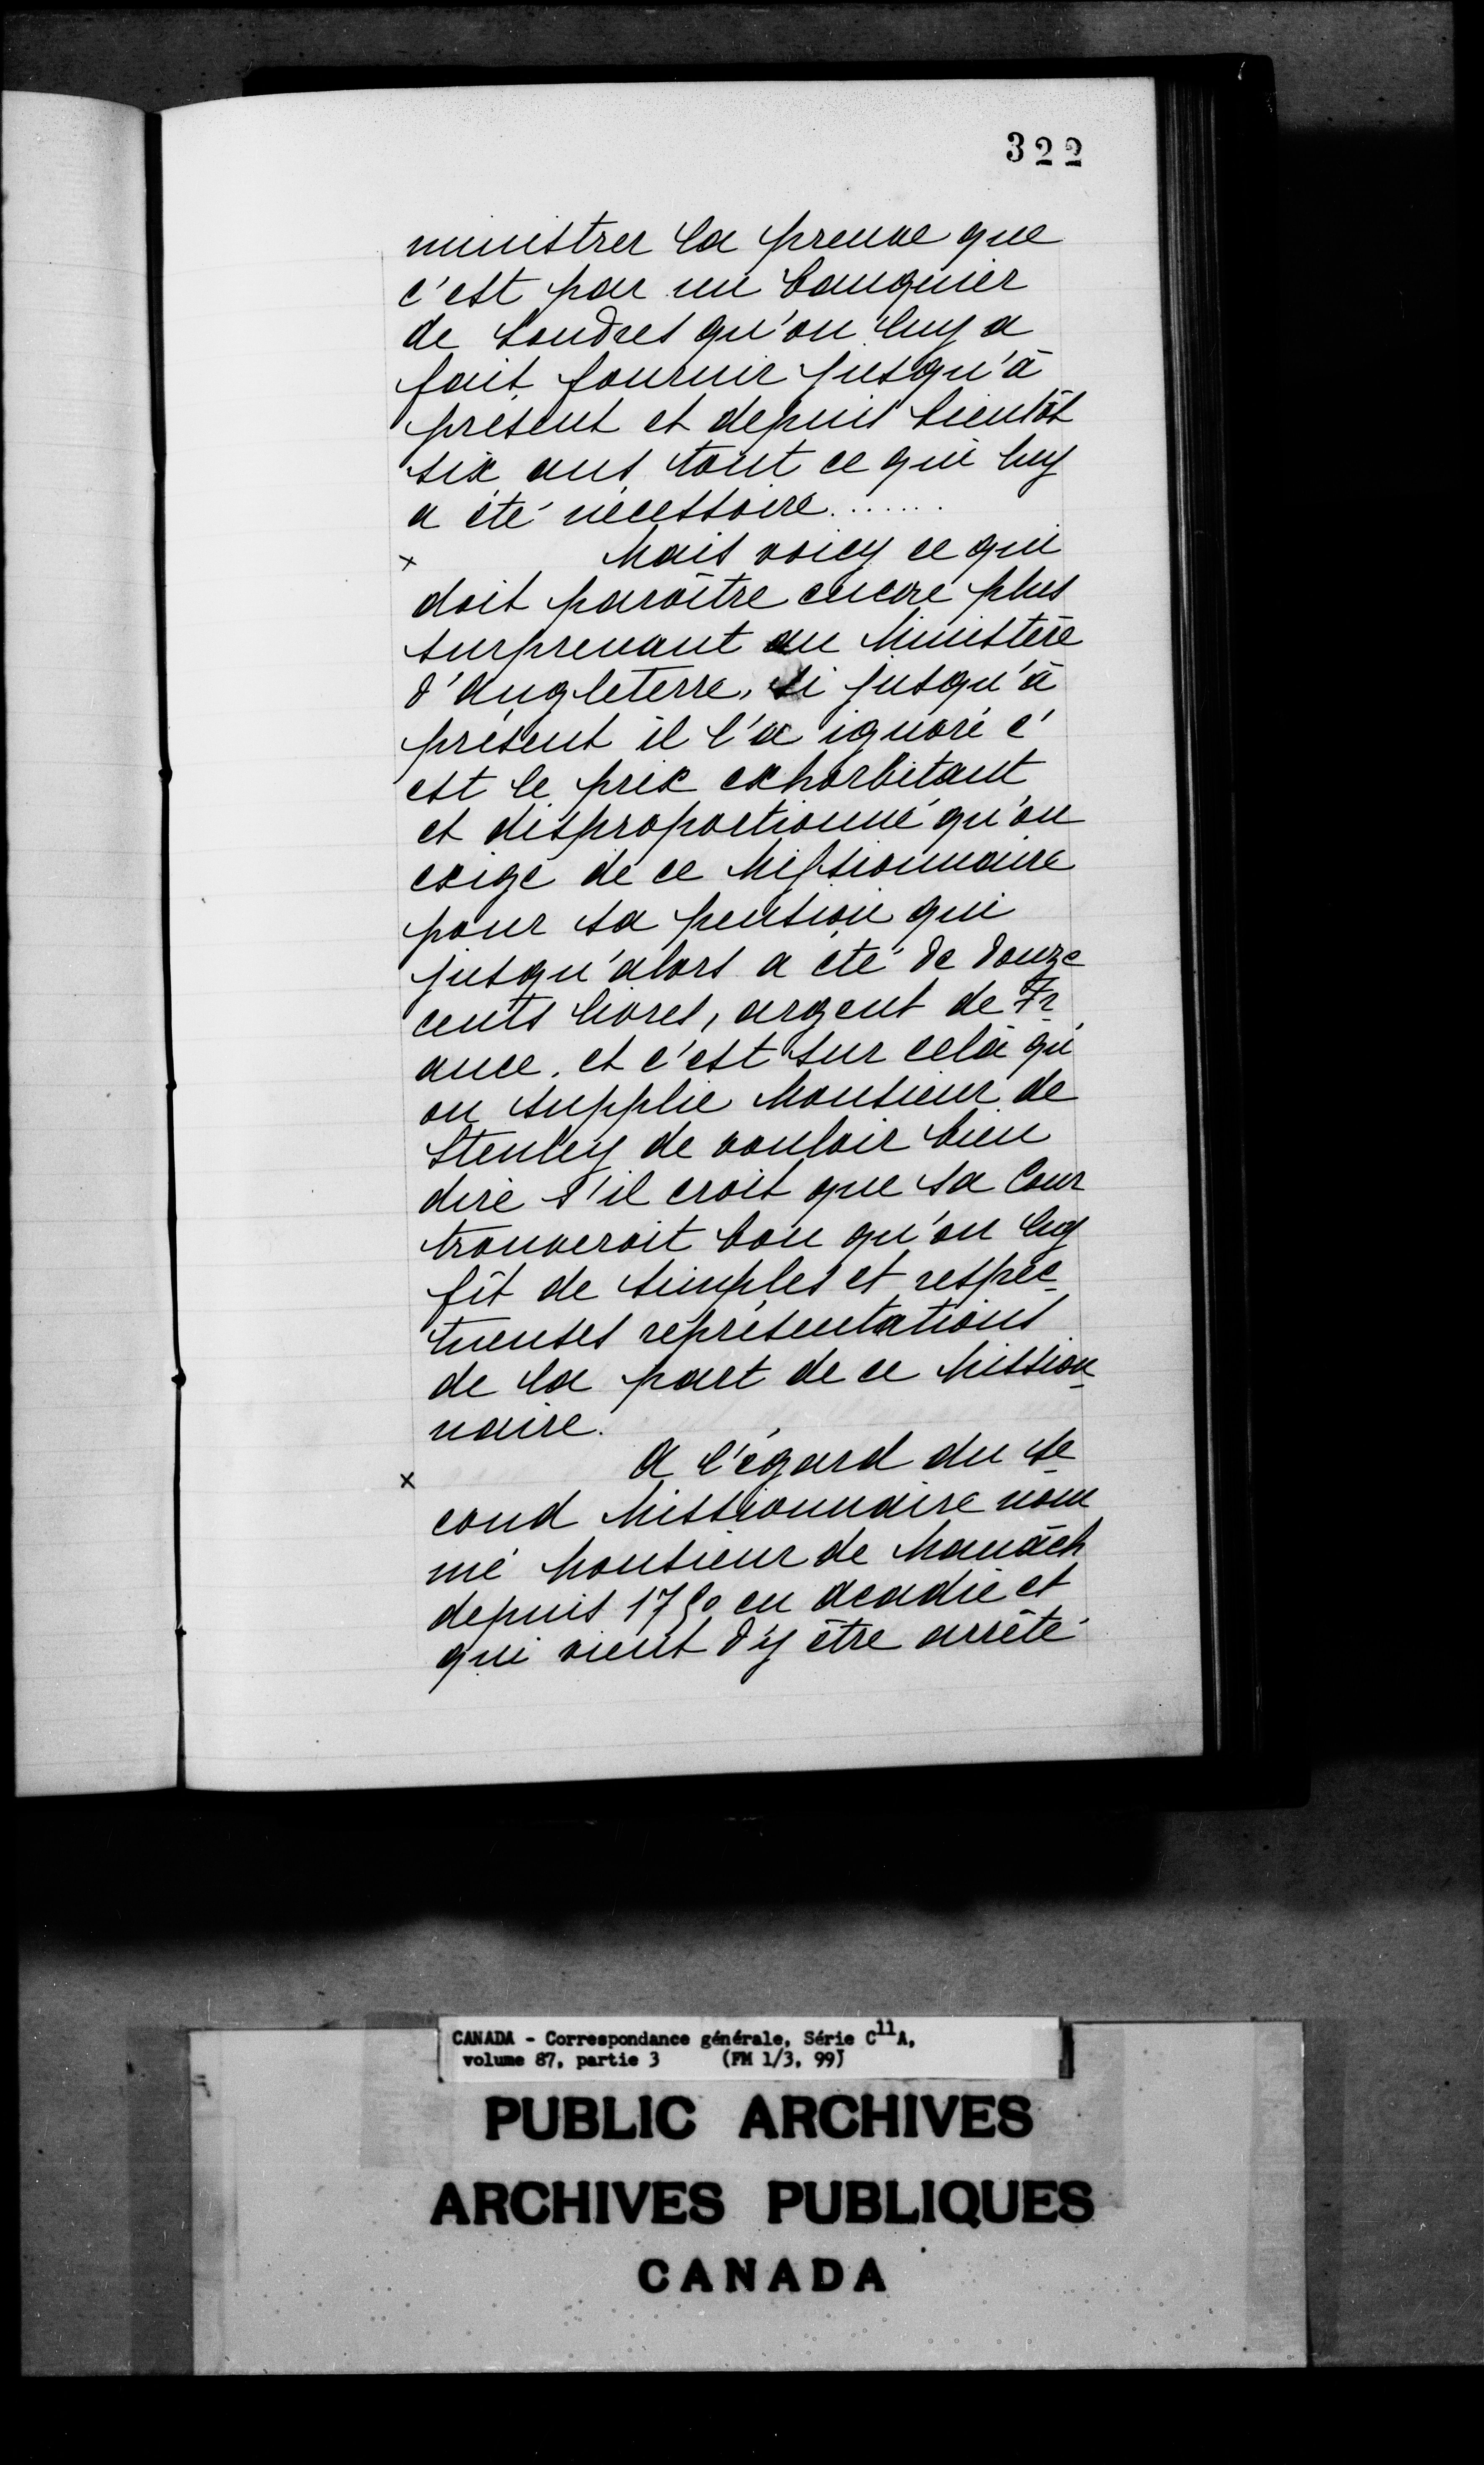 322
ministrer la preuve que
c'est par un banquier
de Londres qu'on luy a
fait fournir jusqu'à
présent et depuis bientôt
six ans tout ce qui luy
a été nécessaire.......
x Mais voicy ce qui
doit paroître encore plus
surprenant au Ministère
d'Angleterre, si jusqu'à
présent il l'a ignoré c'
est le prix exhorbitant
et disproportionné qu'on
exige de ce Missionnaire
pour sa pension qui
jusqu'alors a été de douze
cents livres, argent de Fr
ance. et c'est sur celà qu'
on supplie Monsieur de
Stenley de vouloir bien
dire s'il croit que sa Cour
trouveroit bon qu'on luy
fît de simples et respec-
tueuses représentations
de la part de ce Mission-
naire.
x A l'égard du se-
cond Missionnaire nom
mé Monsieur de Manach
depuis 1750 en Acadie et
qui vient d'y être arrêté
CANADA - Correspondance générale, Série C11A,
volume 87, partie 3 (FM 1/3, 99)
PUBLIC ARCHIVES
ARCHIVES PUBLIQUES
CANADA